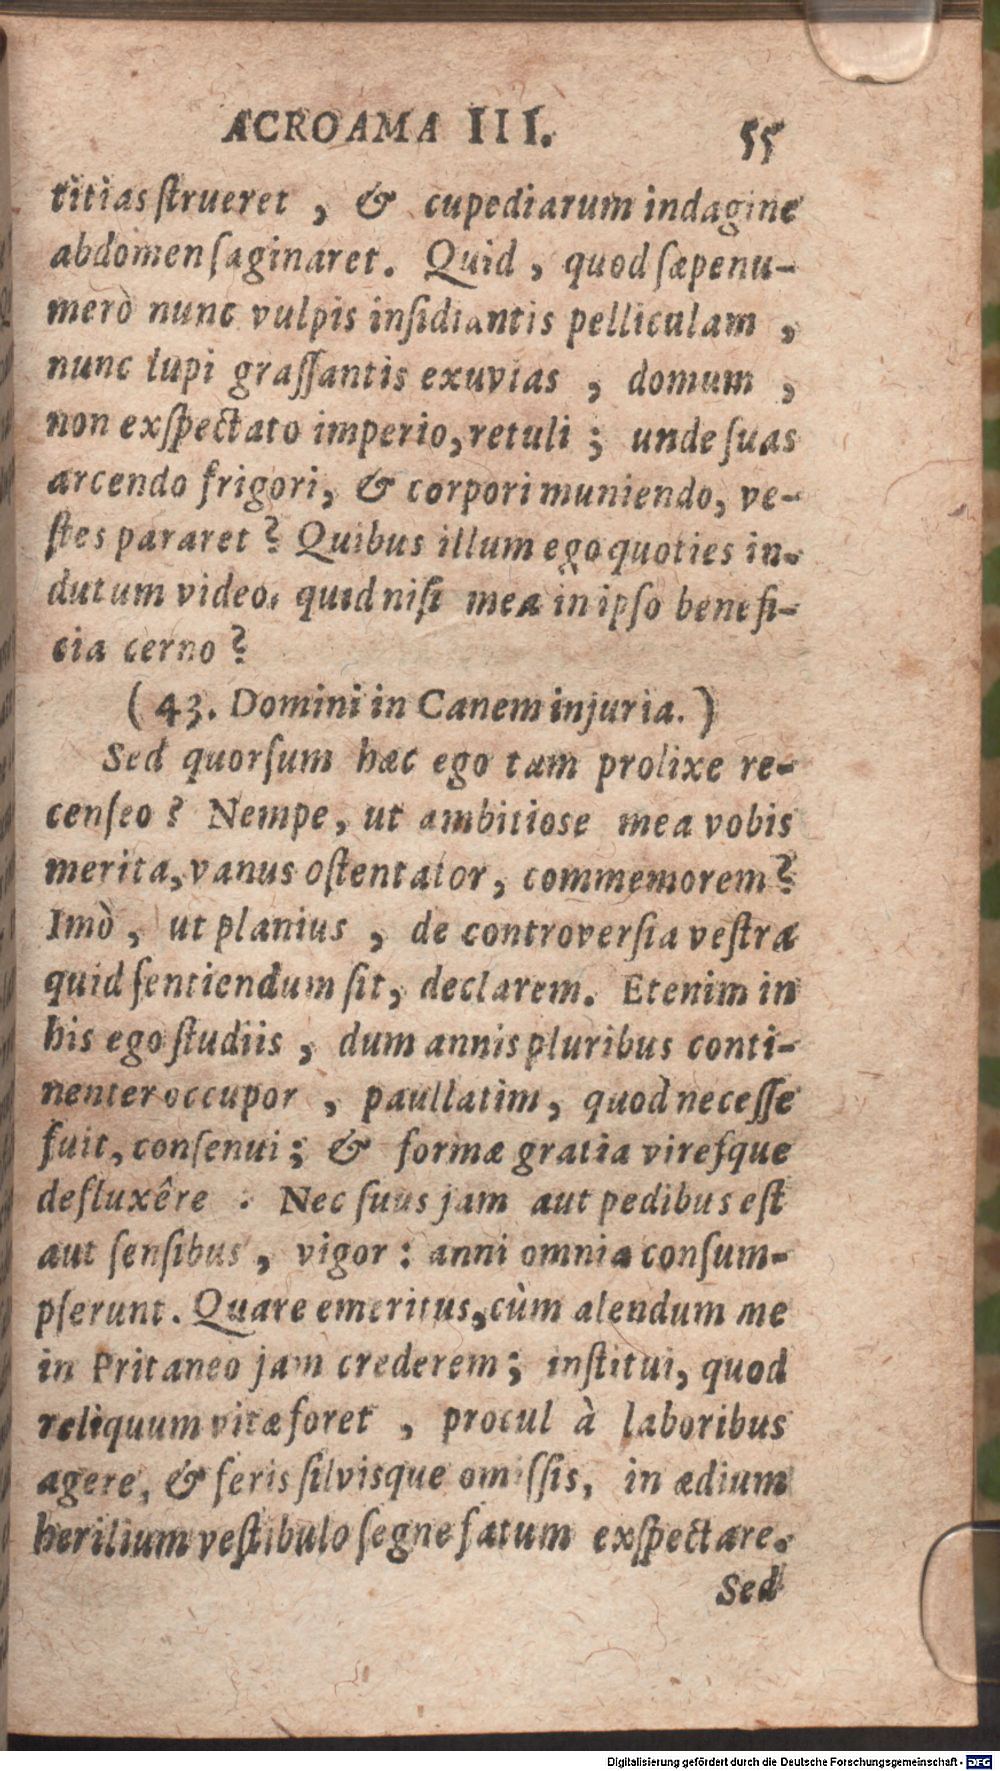 ACROAMA III. 55
titias ſtrueret , & cupediarum indagine
abdomen ſaginaret. Quid , quod ſæpenu-
merò nunc vulpis inſidiantis pelliculam ,
nunc lupi graſſantis exuvias , domum ,
non exſpectato imperio, retuli ; unde ſuas
arcendo frigori, & corpori muniendo, ve-
ſtes pararet ? Quibus illum ego quoties in-
dutum video, quid niſi mea in ipſo benefi-
cia cerno ?
( 43. Domini in Canem injuria. )
Sed quorſum hæc ego tam prolixe re-
cenſeo ? Nempe, ut ambitioſe mea vobis
merita, vanus oſtentator, commemorem ?
Imò , ut planius , de controverſia veſtra
quid ſentiendum ſit, declarem. Etenim in
his ego ſtudiis , dum annis pluribus conti-
nenter occupor , paullatim, quod neceſſe
fuit, conſenui ; & formæ gratia vireſque
defluxêre . Nec ſuus jam aut pedibus eſt
aut ſenſibus , vigor : anni omnia conſum-
pſerunt. Quare emeritus, cùm alendum me
in Pritaneo jam crederem ; inſtitui, quod
reliquum vitæ foret , procul à laboribus
agere, & feris ſilvisque omiſſis, in ædium
herilium veſtibulo ſegne fatum exſpectare.
Sed
Digitalisierung gefördert durch die Deutsche Forschungsgemeinschaft - DFG